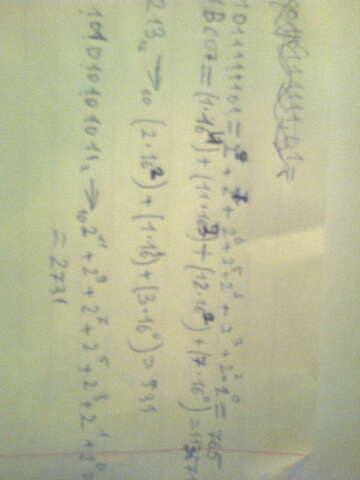 1011111101 = 2⁹ + 2⁷ + 2⁶ + 2⁵ + 2⁴ + 2³ + 2² + 2⁰ = 765
1BC07 = (1·16⁴) + (11·16³) + (12·16²) + (7·16⁰) =
213₁₆ → ₁₀ (2·16²) + (1·16¹) + (3·16⁰) = 931
101010101011₂ → ₁₀ 2¹¹ + 2⁹ + 2⁷ + 2⁵ + 2³ + 2¹ + 2⁰ =
= 2731